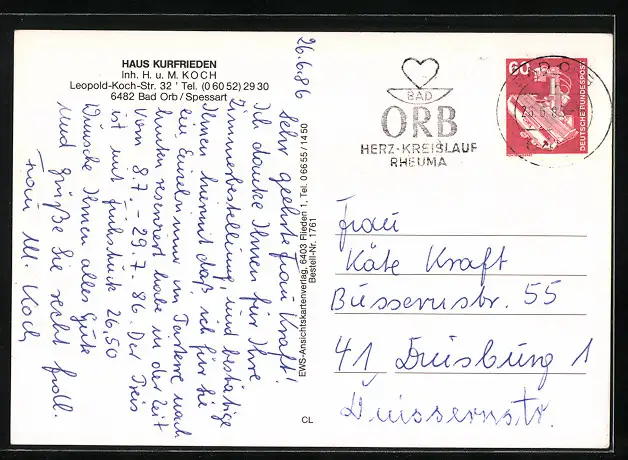 HAUS KURFRIEDEN
Inh. H. u. M. KOCH
Leopold-Koch-Str. 32 ' Tel. (0 60 52) 29 30
6482 Bad Orb / Spessart
26.6.86
Sehr geehrte Frau Kraft!
Ich danke Ihnen für Ihre
Zimmerbestellung, und bestätige
Ihnen hiermit daß ich für Sie
ein Einzelzimmer im Parterre nach
hinten reserviert habe in der Zeit
vom 8.7. - 29.7.86. Der Preis
ist mit Frühstück 26,50
Wünsche Ihnen alles Gute
und grüße Sie recht frdl.
Frau M. Koch
EWS-Ansichtskartenverlag, 6403 Flieden 1, Tel. 0 66 55 / 14 50
Bestell-Nr. 1761
CL
BAD
ORB
HERZ-KREISLAUF
RHEUMA
60
DEUTSCHE BUNDESPOST
Frau
Käte Kraft
41 Duisburg 1